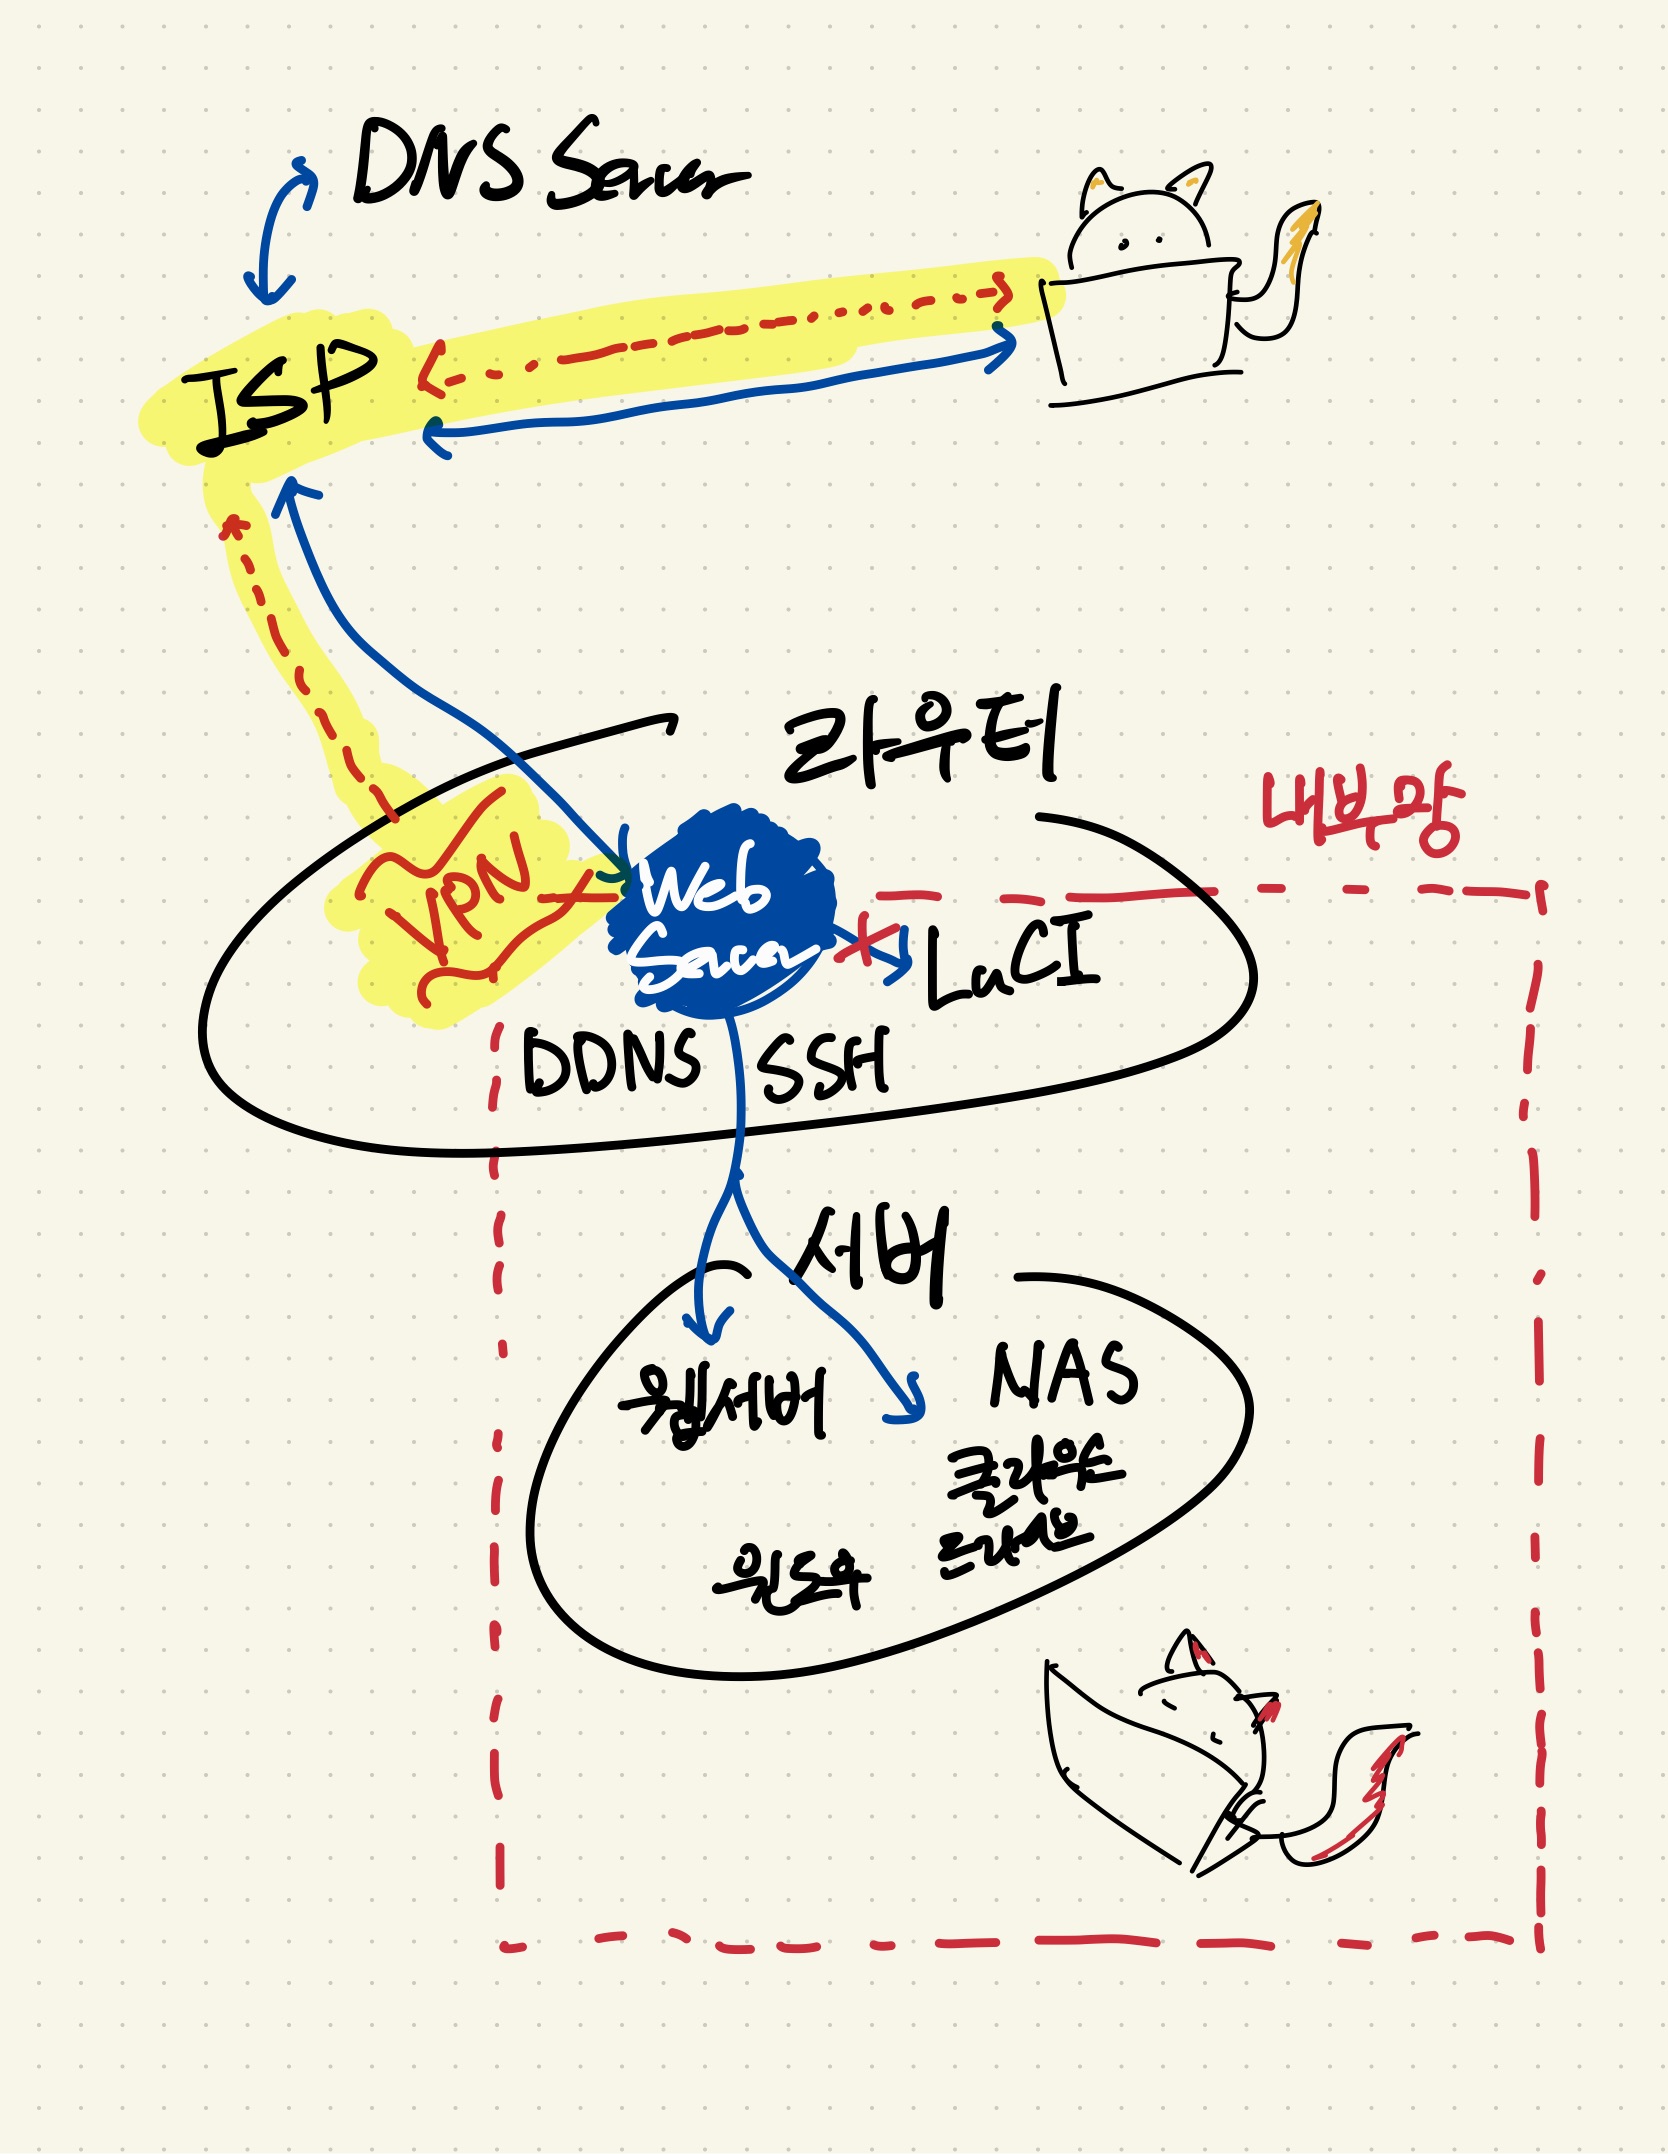 DNS Server
ISP
라우터
내부망
VPN
Web
Server
LuCI
DDNS SSH
서버
웹서버
NAS
클라우드
드라이브
윈도우